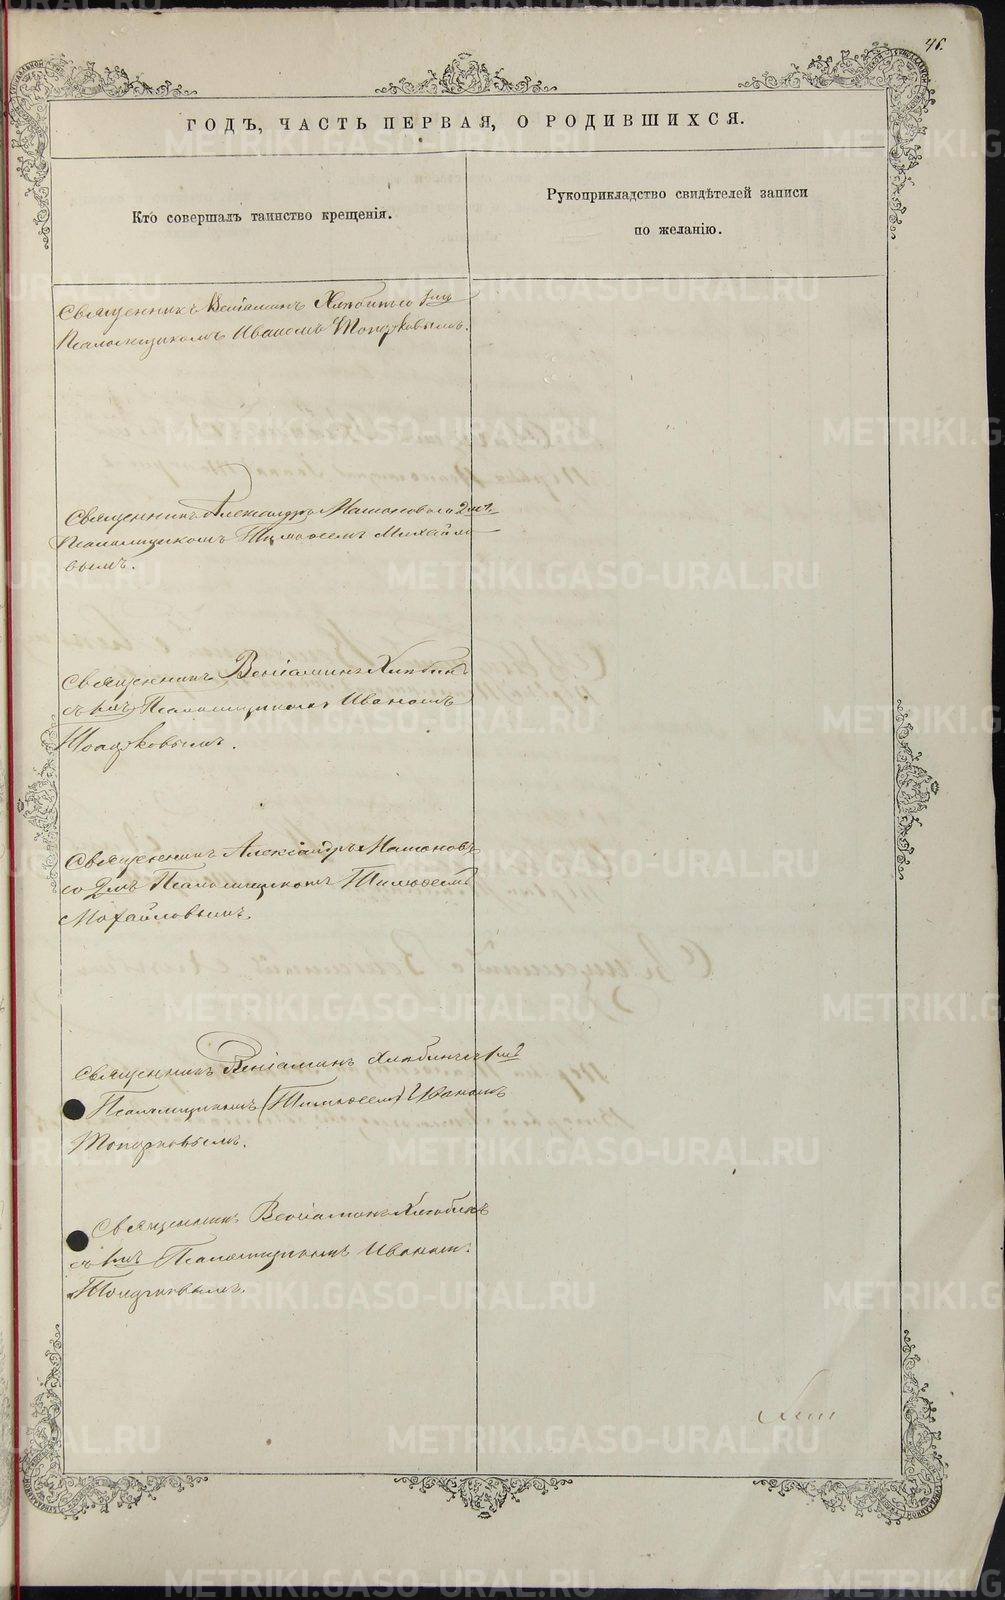 46.
ГОДЪ, ЧАСТЬ ПЕРВАЯ, О РОДИВШИХСЯ.
Кто совершалъ таинство крещенія.
Рукоприкладство свидѣтелей записи
по желанію.
Священникъ Веніаминъ Хлюбинъ со 1мъ
Псаломщикомъ Иваномъ Топорковымъ.
Священникъ Александръ Мамоновъ со 2мъ
Псаломщикомъ Тимоѳеемъ Михайло
вымъ.
Священникъ Веніаминъ Хлюбинъ
съ 1мъ Псаломщикомъ Иваномъ
Топорковымъ.
Священникъ Александръ Мамоновъ
со 2мъ Псаломщикомъ Тимоѳеемъ
Михайловымъ.
Священникъ Веніаминъ Хлюбинъ съ 1мъ
Псаломщикомъ (Тимоѳеем) Иваномъ
Топорковымъ.
Священникъ Веніаминъ Хлюбинъ
съ 1мъ Псаломщикомъ Иваномъ
Топорковымъ.
METRIKI.GASO-URAL.RU